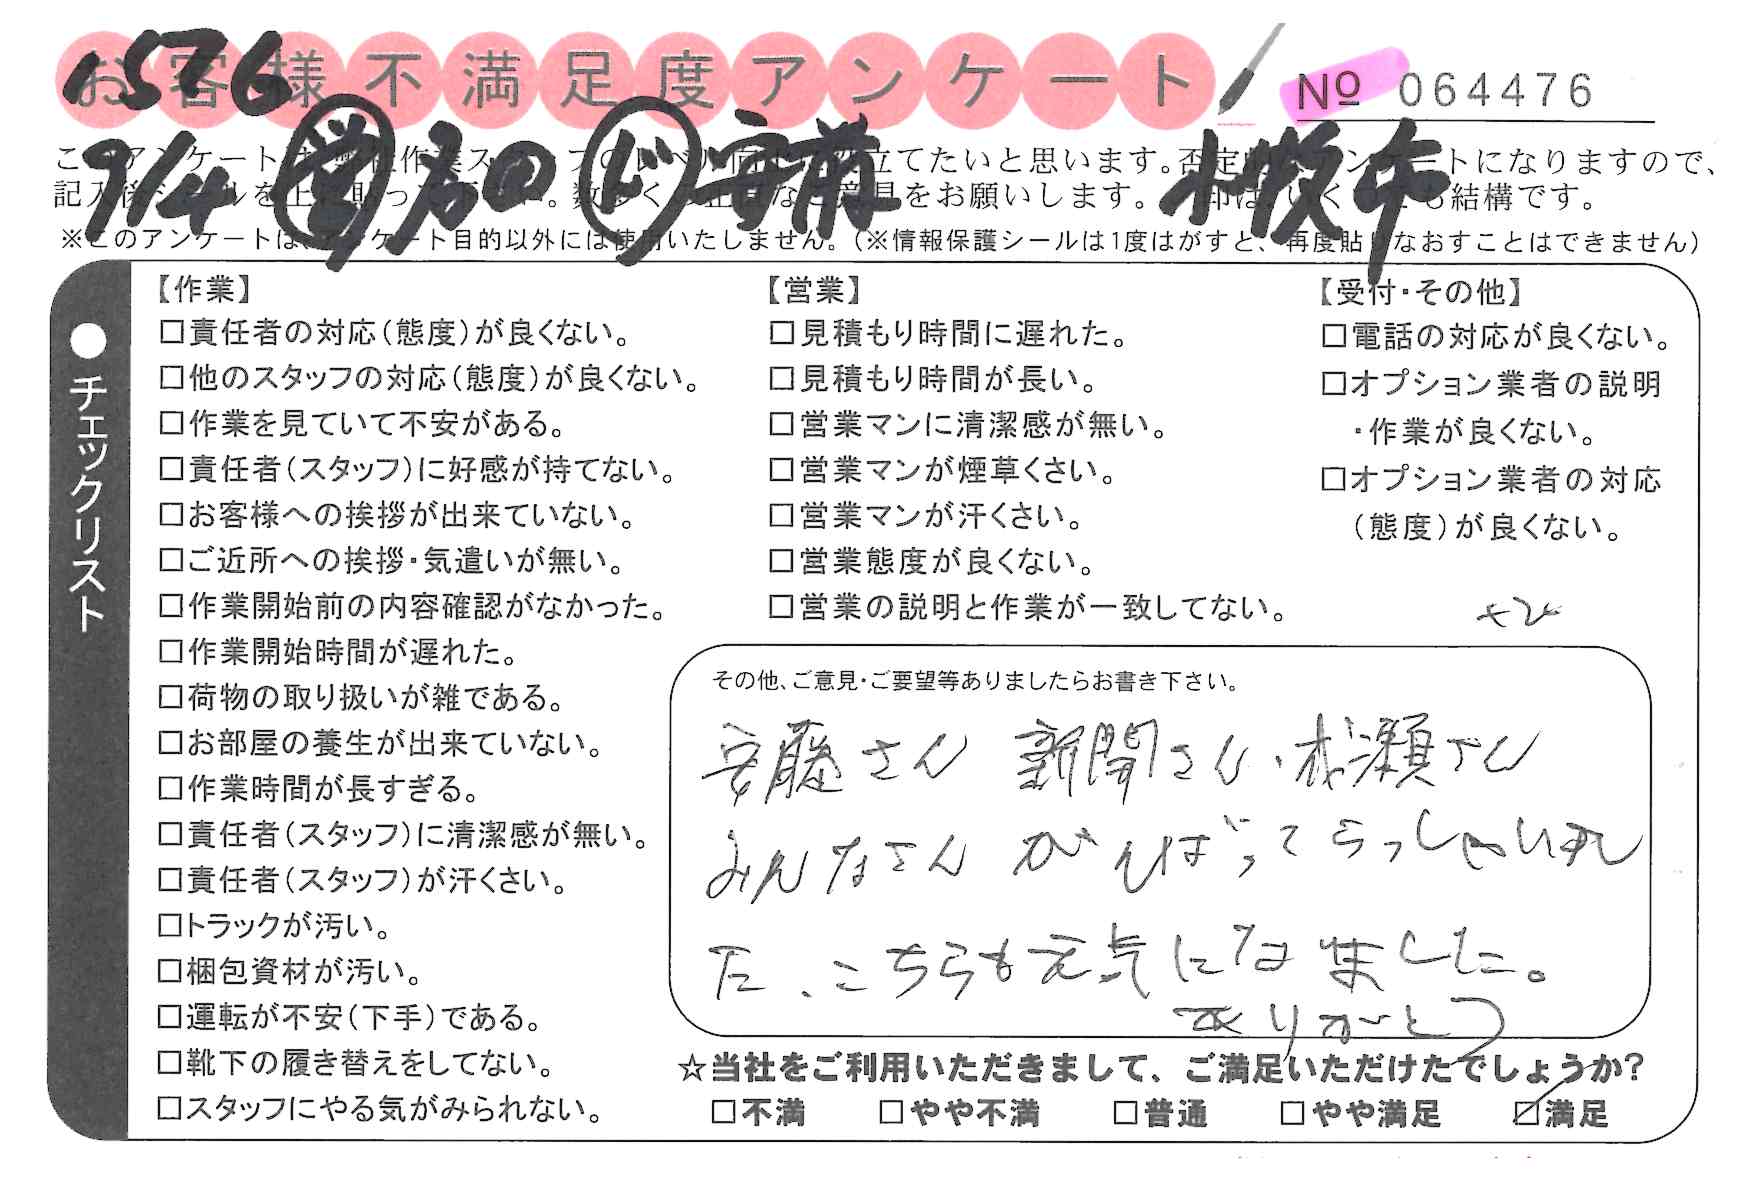 お客様不満足度アンケート
1576
№ 064476
7/4 営 ド 安前 小牧市
このアンケートは、弊社作業スタッフのレベル向上に役立てたいと思います。否定的なアンケートになりますので、
記入後シールを上に貼って下さい。数多くの正直なご意見をお願いします。 印は、いくつでも結構です。
※このアンケートは、アンケート目的以外には使用いたしません。(※情報保護シールは1度はがすと、再度貼りなおすことはできません)
●チェックリスト
【作業】
□責任者の対応(態度)が良くない。
□他のスタッフの対応(態度)が良くない。
□作業を見ていて不安がある。
□責任者(スタッフ)に好感が持てない。
□お客様への挨拶が出来ていない。
□ご近所への挨拶・気遣いが無い。
□作業開始前の内容確認がなかった。
□作業開始時間が遅れた。
□荷物の取り扱いが雑である。
□お部屋の養生が出来ていない。
□作業時間が長すぎる。
□責任者(スタッフ)に清潔感が無い。
□責任者(スタッフ)が汗くさい。
□トラックが汚い。
□梱包資材が汚い。
□運転が不安(下手)である。
□靴下の履き替えをしてない。
□スタッフにやる気がみられない。
【営業】
□見積もり時間に遅れた。
□見積もり時間が長い。
□営業マンに清潔感が無い。
□営業マンが煙草くさい。
□営業マンが汗くさい。
□営業態度が良くない。
□営業の説明と作業が一致してない。
【受付・その他】
□電話の対応が良くない。
□オプション業者の説明
・作業が良くない。
□オプション業者の対応
(態度)が良くない。
その他、ご意見・ご要望等ありましたらお書き下さい。
安藤さん 新開さん・成瀬さん
みんなさん がんばってらっしゃいまし
た、こちらも元気になました。
ありがとう
☆当社をご利用いただきまして、ご満足いただけたでしょうか?
□不満 □やや不満 □普通 □やや満足 ☑満足